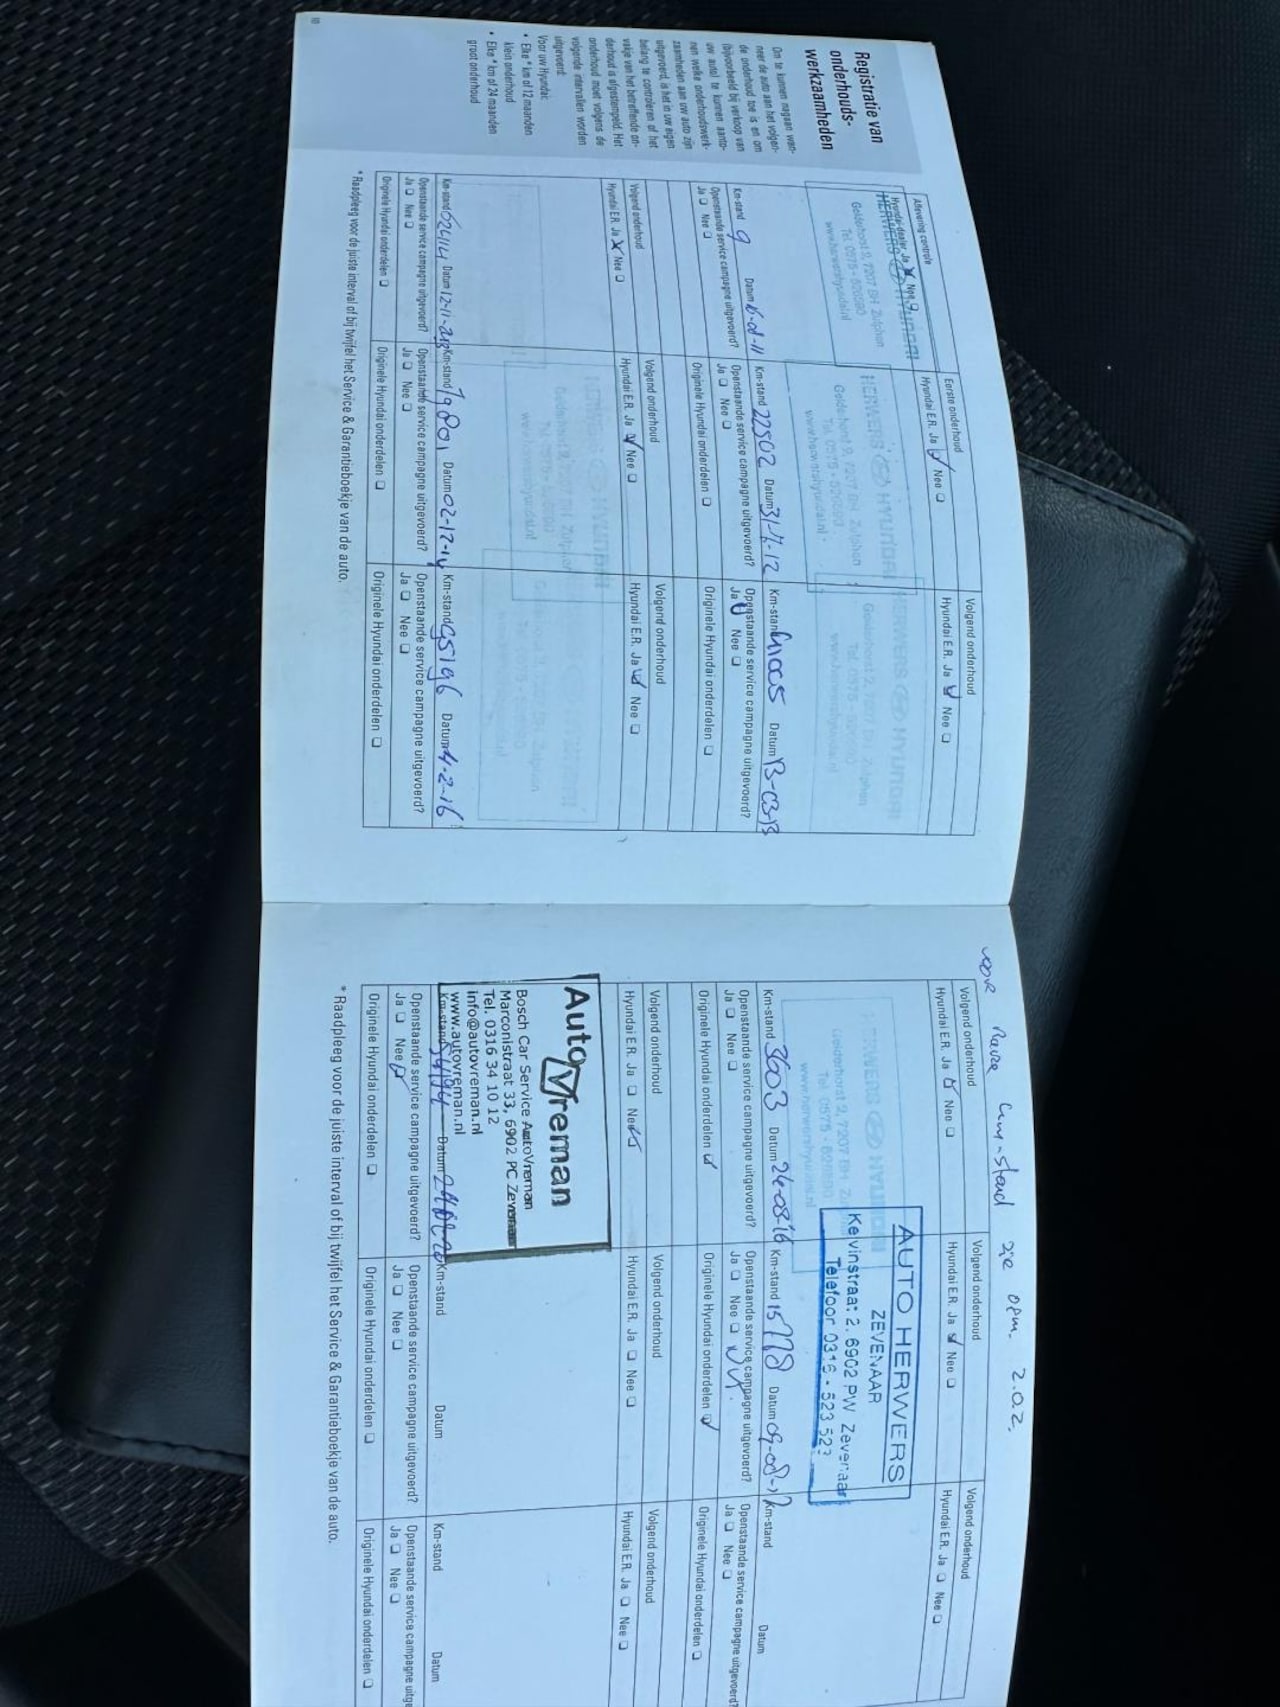 Registratie van
onderhouds-
werkzaamheden
Om te kunnen nagaan wan-
neer de auto aan het volgen-
de onderhoud toe is en om
(bijvoorbeeld bij verkoop van
uw auto) te kunnen aanto-
nen welke onderhoudswerk-
zaamheden aan uw auto zijn
uitgevoerd, is het in uw eigen
belang te controleren of het
vakje van het betreffende on-
derhoud is afgestempeld. Het
onderhoud moet volgens de
volgende intervallen worden
uitgevoerd:
Voor uw Hyundai:
• Elke * km of 12 maanden
klein onderhoud
• Elke * km of 24 maanden
groot onderhoud
10
Aflevering controle
Hyundai-dealer Ja Nee
HERWERS HYUNDAI
Gelderhorst 9, 7207 BH Zutphen
Tel. 0575 - 520590
www.herwershyundai.nl
Km-stand 9 Datum
Openstaande service campagne uitgevoerd?
Ja Nee
Eerste onderhoud
Hyundai E.R. Ja Nee
HERWERS HYUNDAI
Km-stand 22502 Datum 31-7-12
Openstaande service campagne uitgevoerd?
Ja Nee
Originele Hyundai onderdelen
Volgend onderhoud
Hyundai E.R. Ja Nee
HERWERS HYUNDAI
Km-stand 41005 Datum 13-03-13
Openstaande service campagne uitgevoerd?
Ja Nee
Originele Hyundai onderdelen
Volgend onderhoud
Hyundai E.R. Ja Nee
Km-stand 62414 Datum 12-11-2013
Openstaande service campagne uitgevoerd?
Ja Nee
Originele Hyundai onderdelen
Volgend onderhoud
Hyundai E.R. Ja Nee
HYUNDAI
Km-stand 79801 Datum 02-12-14
Openstaande service campagne uitgevoerd?
Ja Nee
Originele Hyundai onderdelen
Volgend onderhoud
Hyundai E.R. Ja Nee
Km-stand 95196 Datum 4-2-16
Openstaande service campagne uitgevoerd?
Ja Nee
Originele Hyundai onderdelen
* Raadpleeg voor de juiste interval of bij twijfel het Service & Garantieboekje van de auto.
voor nieuwe km-stand zie opm. 2.02.
Volgend onderhoud
Hyundai E.R. Ja Nee
HERWERS HYUNDAI
Km-stand 3603 Datum 24-08-'16
Openstaande service campagne uitgevoerd?
Ja Nee
Originele Hyundai onderdelen
Volgend onderhoud
Hyundai E.R. Ja Nee
AUTO HERWERS
ZEVENAAR
Kelvinstraat 2, 6902 PW Zevenaar
Telefoon 0316 - 523 523
Km-stand 15778 Datum 09-08-17
Openstaande service campagne uitgevoerd?
Ja Nee
Originele Hyundai onderdelen
Volgend onderhoud
Hyundai E.R. Ja Nee
Km-stand Datum
Openstaande service campagne uitgevoerd?
Ja Nee
Originele Hyundai onderdelen
Volgend onderhoud
Hyundai E.R. Ja Nee
AutoVreman
Bosch Car Service AutoVreman
Marconistraat 33, 6902 PC Zevenaar
Tel. 0316 34 10 12
Info@autovreman.nl
www.autovreman.nl
Km-stand Datum
Openstaande service campagne uitgevoerd?
Ja Nee
Originele Hyundai onderdelen
Volgend onderhoud
Hyundai E.R. Ja Nee
Km-stand Datum
Openstaande service campagne uitgevoerd?
Ja Nee
Originele Hyundai onderdelen
Volgend onderhoud
Hyundai E.R. Ja Nee
Km-stand Datum
Openstaande service campagne uitge
Ja Nee
Originele Hyundai onderdelen
* Raadpleeg voor de juiste interval of bij twijfel het Service & Garantieboekje van de auto.